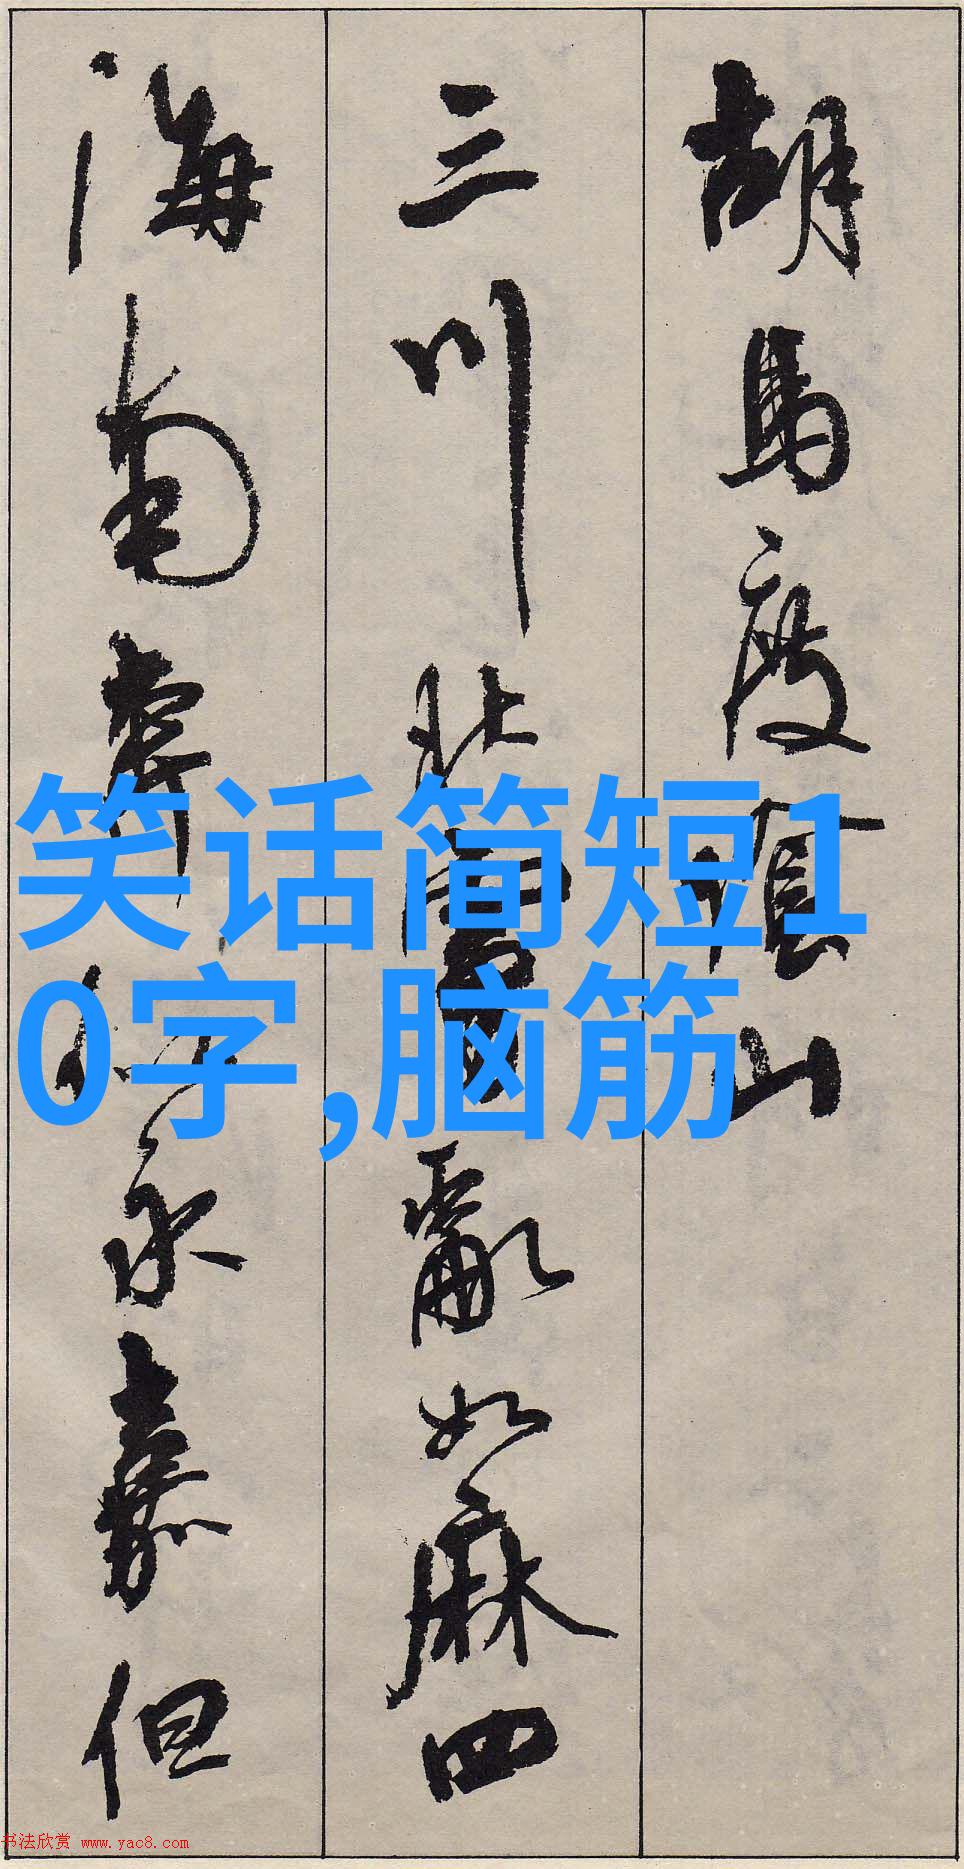 胡馬度陰山
三川北虜亂如麻四
海南奔似永嘉但
笑话简短1
0字,脑筋
书法欣赏 www.yac8.com